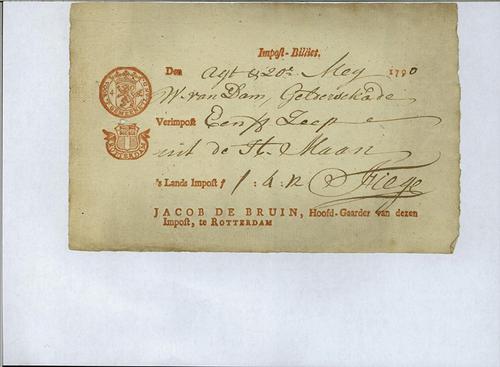 Impost-Billiet.
Den Agt & 20e. Mey 1790
W. van Dam, Gelderschekade
Verimpost Een Zeep
uit de St. Maan
's Lands Impost ƒ 1:4:12
JACOB DE BRUIN, Hoofd-Gaarder van dezen
Impost, te ROTTERDAM
ROTTERDAM